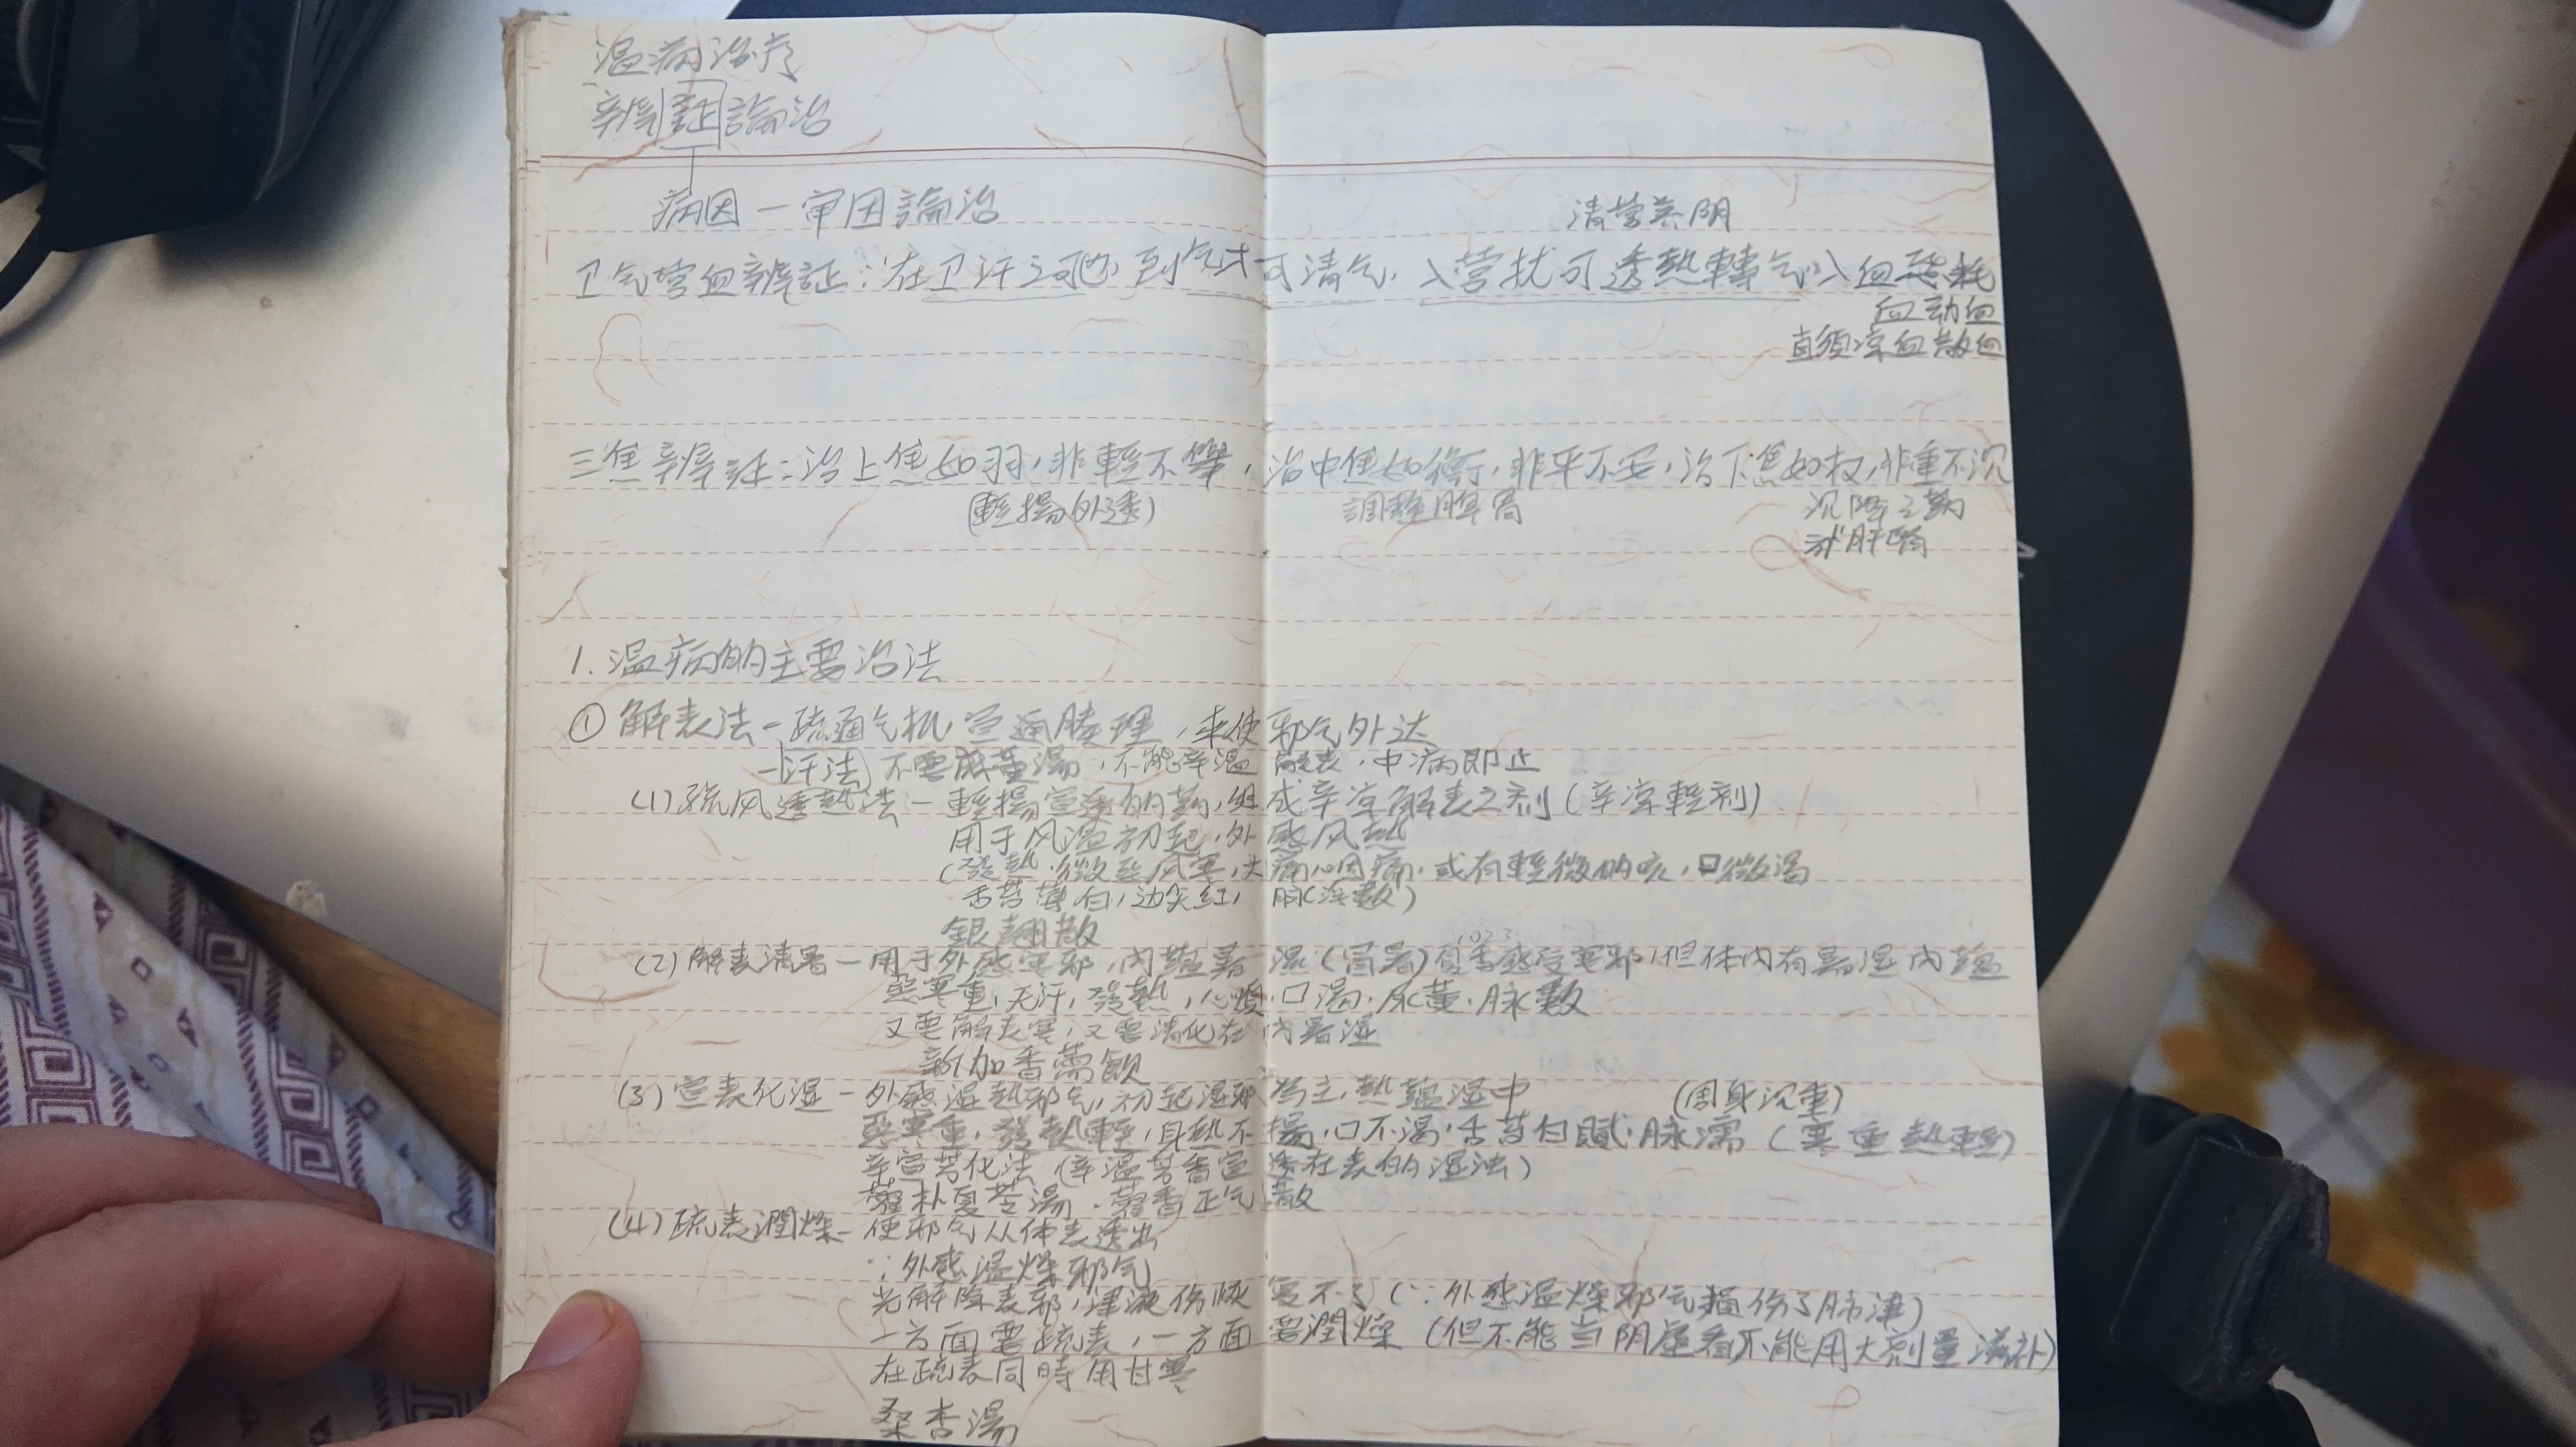 温病治疗
辨証論治
病因一审因論治
清营养阴
卫气营血辨証：在卫汗之可也，到气才可清气，入营犹可透熱轉气，入血恐耗
血动血
直須凉血散血
三焦辨証：治上焦如羽，非輕不舉，治中焦如衡，非平不安，治下焦如权，非重不沉
(輕揚外透) 調整脾胃 沉降之药
肝腎
1. 温病的主要治法
① 解表法－疏通气机 宣通腠理，来使邪气外达
－汗法 不要麻黄湯，不能辛温解表，中病即止
(1) 疏风透熱法－輕揚宣透的药，组成辛凉解表之剂(辛凉輕剂)
用于风温初起，外感风熱
(發熱，微惡风寒，头痛，咽痛，或有輕微的咳，口微渴
舌苔薄白，边尖红，脉浮数)
銀翹散
(2) 解表清暑－用于外感寒邪，内蕴暑湿(冒暑)夏季感受寒邪，但体内有暑湿内蕴
惡寒重，无汗，發熱，心煩，口渴，尿黄，脉数
又要解表寒，又要清化在内暑湿
新加香薷飲
(3) 宣表化湿－外感湿熱邪气，初起湿邪為主，熱蕴湿中 (周身沉重)
惡寒重，發熱輕，身熱不揚，口不渴，舌苔白膩，脉濡(寒重熱輕)
辛宣芳化法(辛温芳香宣透在表的湿浊)
藿朴夏苓湯．藿香正气散
(4) 疏表潤燥－使邪气从体表透出
∵外感温燥邪气
光解除表邪，津液伤恢复不了(∵外感温燥邪气損伤了肺津)
一方面要疏表，一方面要潤燥(但不能当阴虚看，不能用大剂量滋补)
在疏表同時用甘寒
桑杏湯